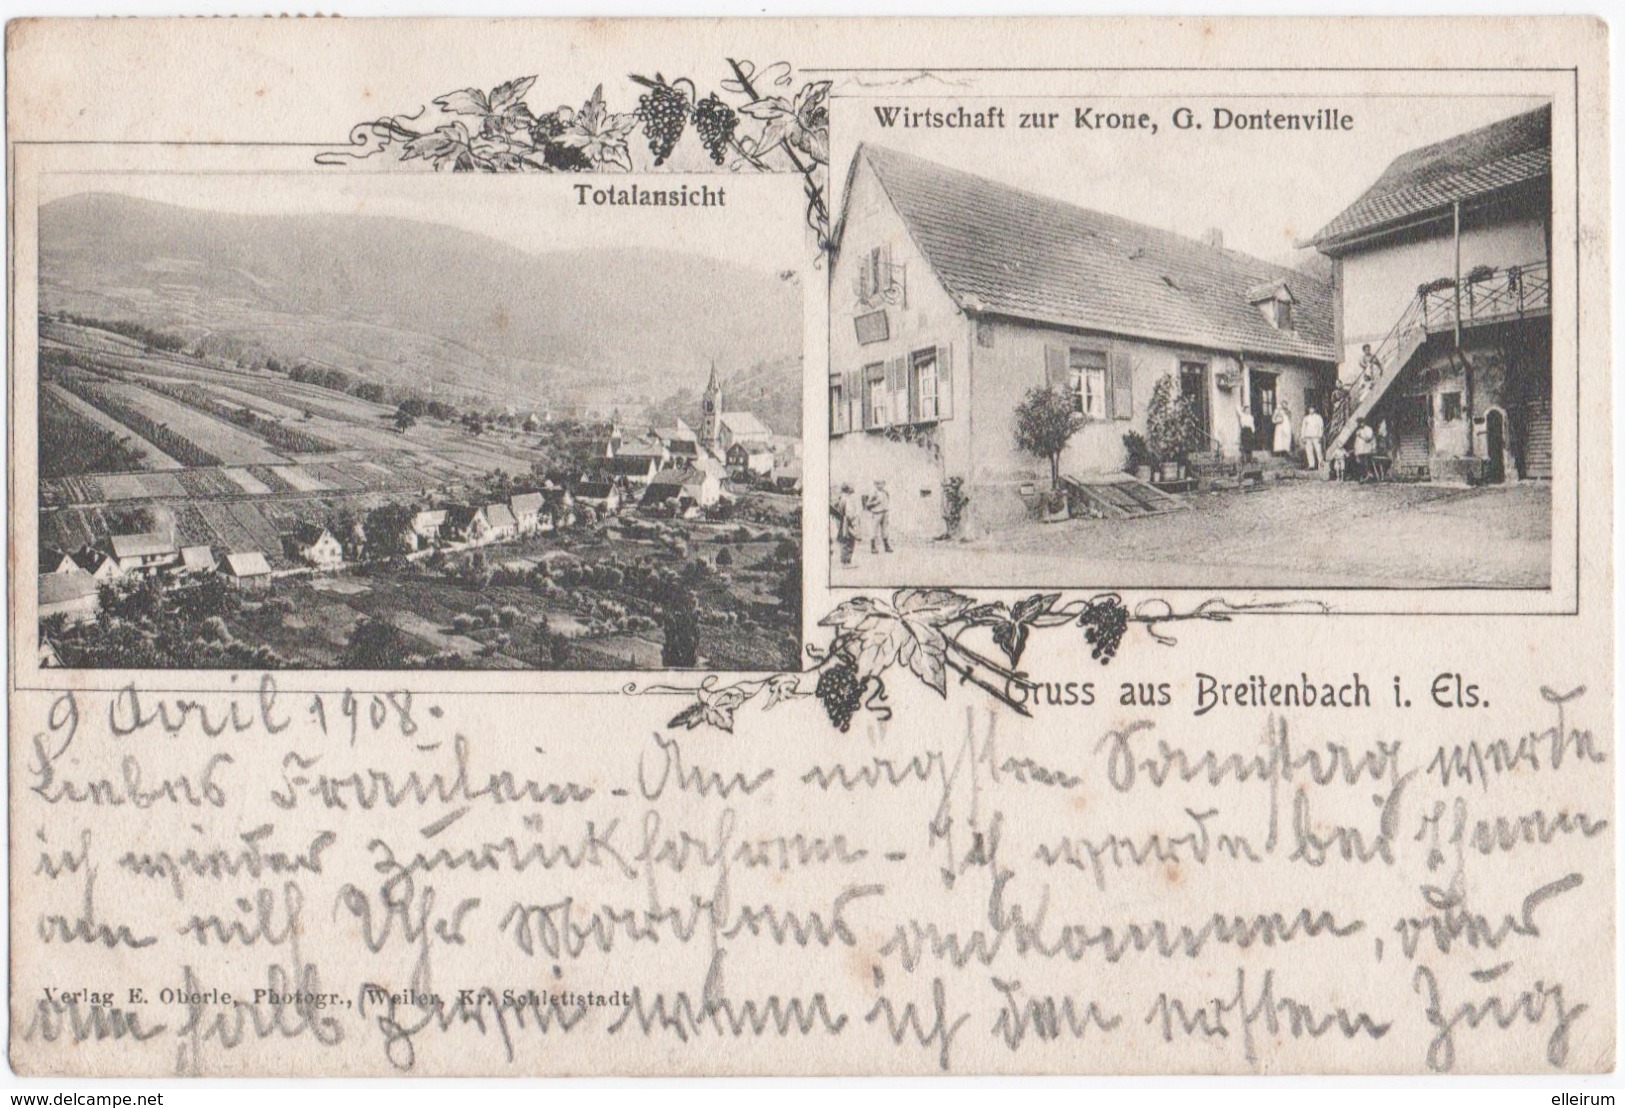 Wirtschaft zur Krone, G. Dontenville
Totalansicht
Gruss aus Breitenbach i. Els.
9 April 1908.
Liebes Fräulein - Am nägsten Samstag werde
ich wieder zurückfahren - Ich werde bei Ihnen
am eilf Uhr Morgens ankommen, oder
um halb zwei wenn ich den ersten Zug
Verlag E. Oberle, Photogr., Weiler, Kr. Schlettstadt
www.delcampe.net
elleirum